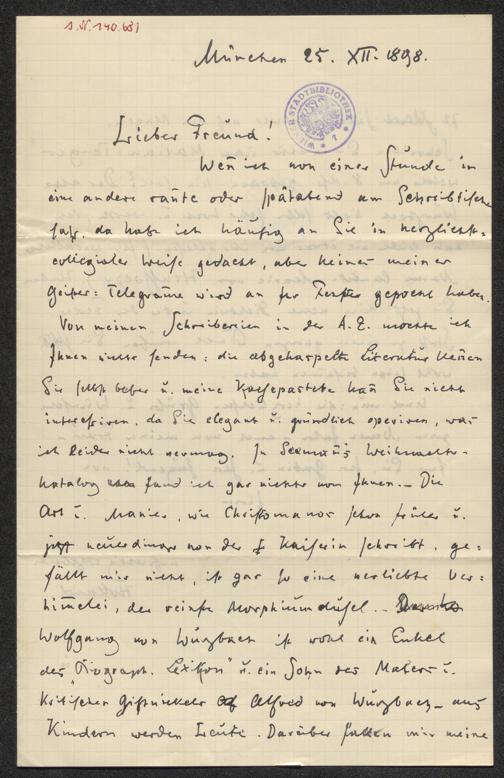 A.N. 140.681
WIENER STADTBIBLIOTHEK
München 25. XII. 1898.
Lieber Freund!
Wen̄ ich von einer Stunde in
eine andere raūte oder spätabend am Schreibtische
saß, da habe ich häufig an Sie in herzlichst-
collegialer Weise gedacht, aber keines meiner
Geister-Telegram̄e wird an Ihr Fenster gepocht haben.
Von meinen Schreibereien in der A. Z. mochte ich
Ihnen nichts senden: die abgehaspelte Literatur kennen
Sie selbst besser u. meine kan̄ Sie nicht
interessiren, da Sie elegant u. gründlich operiren, was
ich leider nicht vermag. In Seeman̄s Weihnachts-
katalog fand ich gar nichts von Ihnen. – Die
Art u. Manier, wie Christomanos schon früher u.
jetzt neuerdings von der Kaiserin schreibt, ge-
fällt mir nicht, ist gar so eine verliebte Ver-
him̄elei, der reinste Morphiumdusel. –
Wolfgang von Wurzbach ist wohl ein Enkel
des "Biograph. Lexikon" u. ein Sohn des Malers u.
kritischen Alfred von Wurzbach – aus
Kindern werden Leute. Darüber fallen mir meine